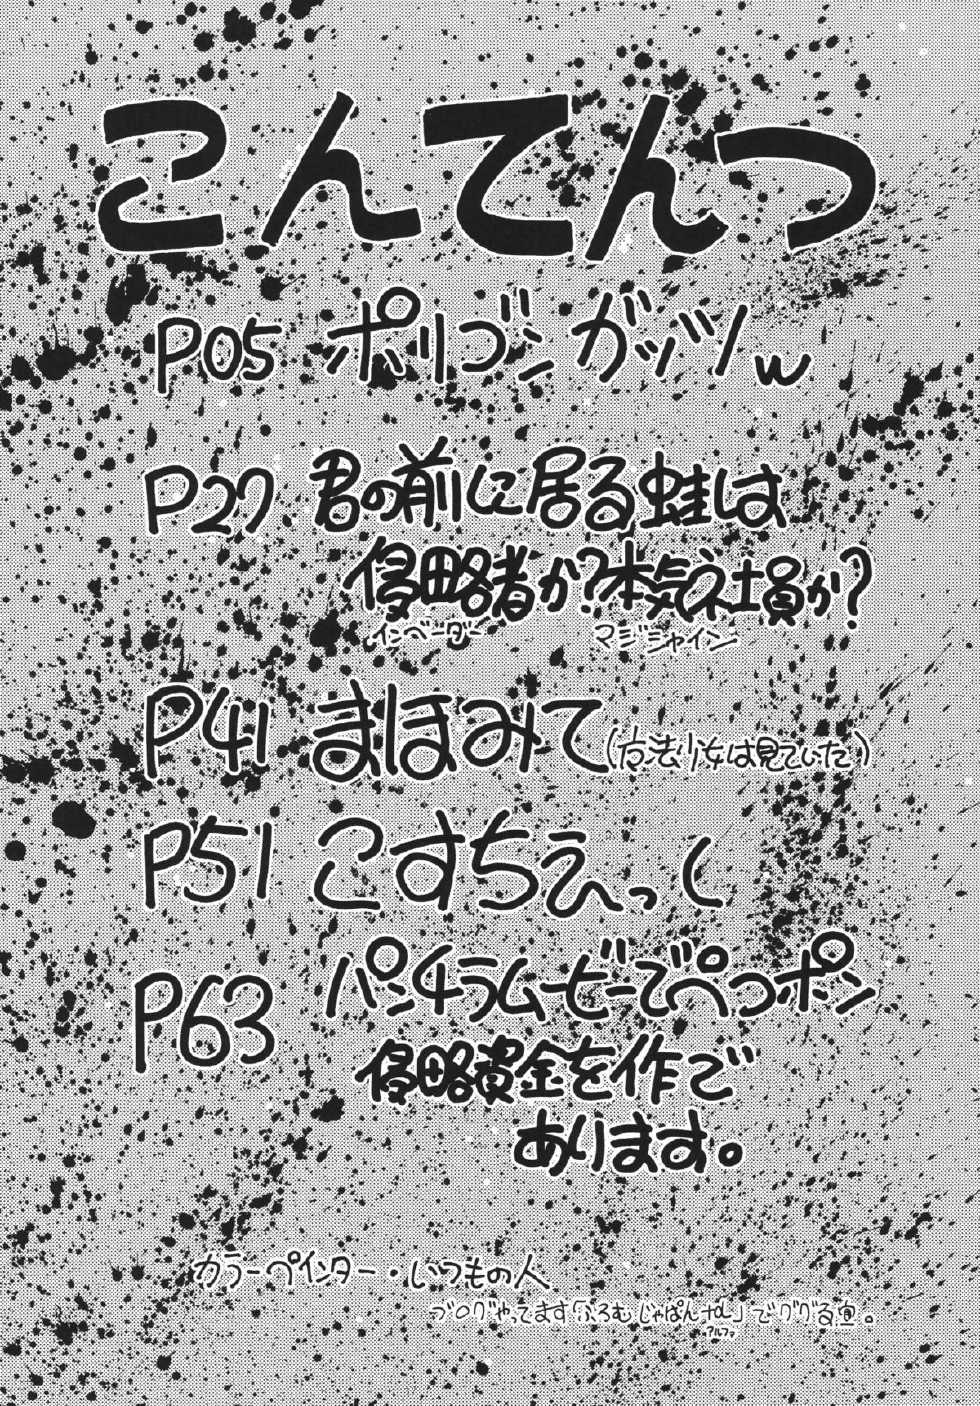 こんてんつ
P05 ポリゴンガッツw
P27 君の前に居る蛙は
侵略者か?本気ネ土員か?
インベーダー マジシャイン
P41 まほみて(魔法少女は見ていた)
P51 こすちぇっく
P63 パンチラムービーでぺコポン
侵略資金を作で
あります。
カラーペインター・いつもの人
ブログやってます「ふろむじゃぱんなし」でググる宜。
アルファ